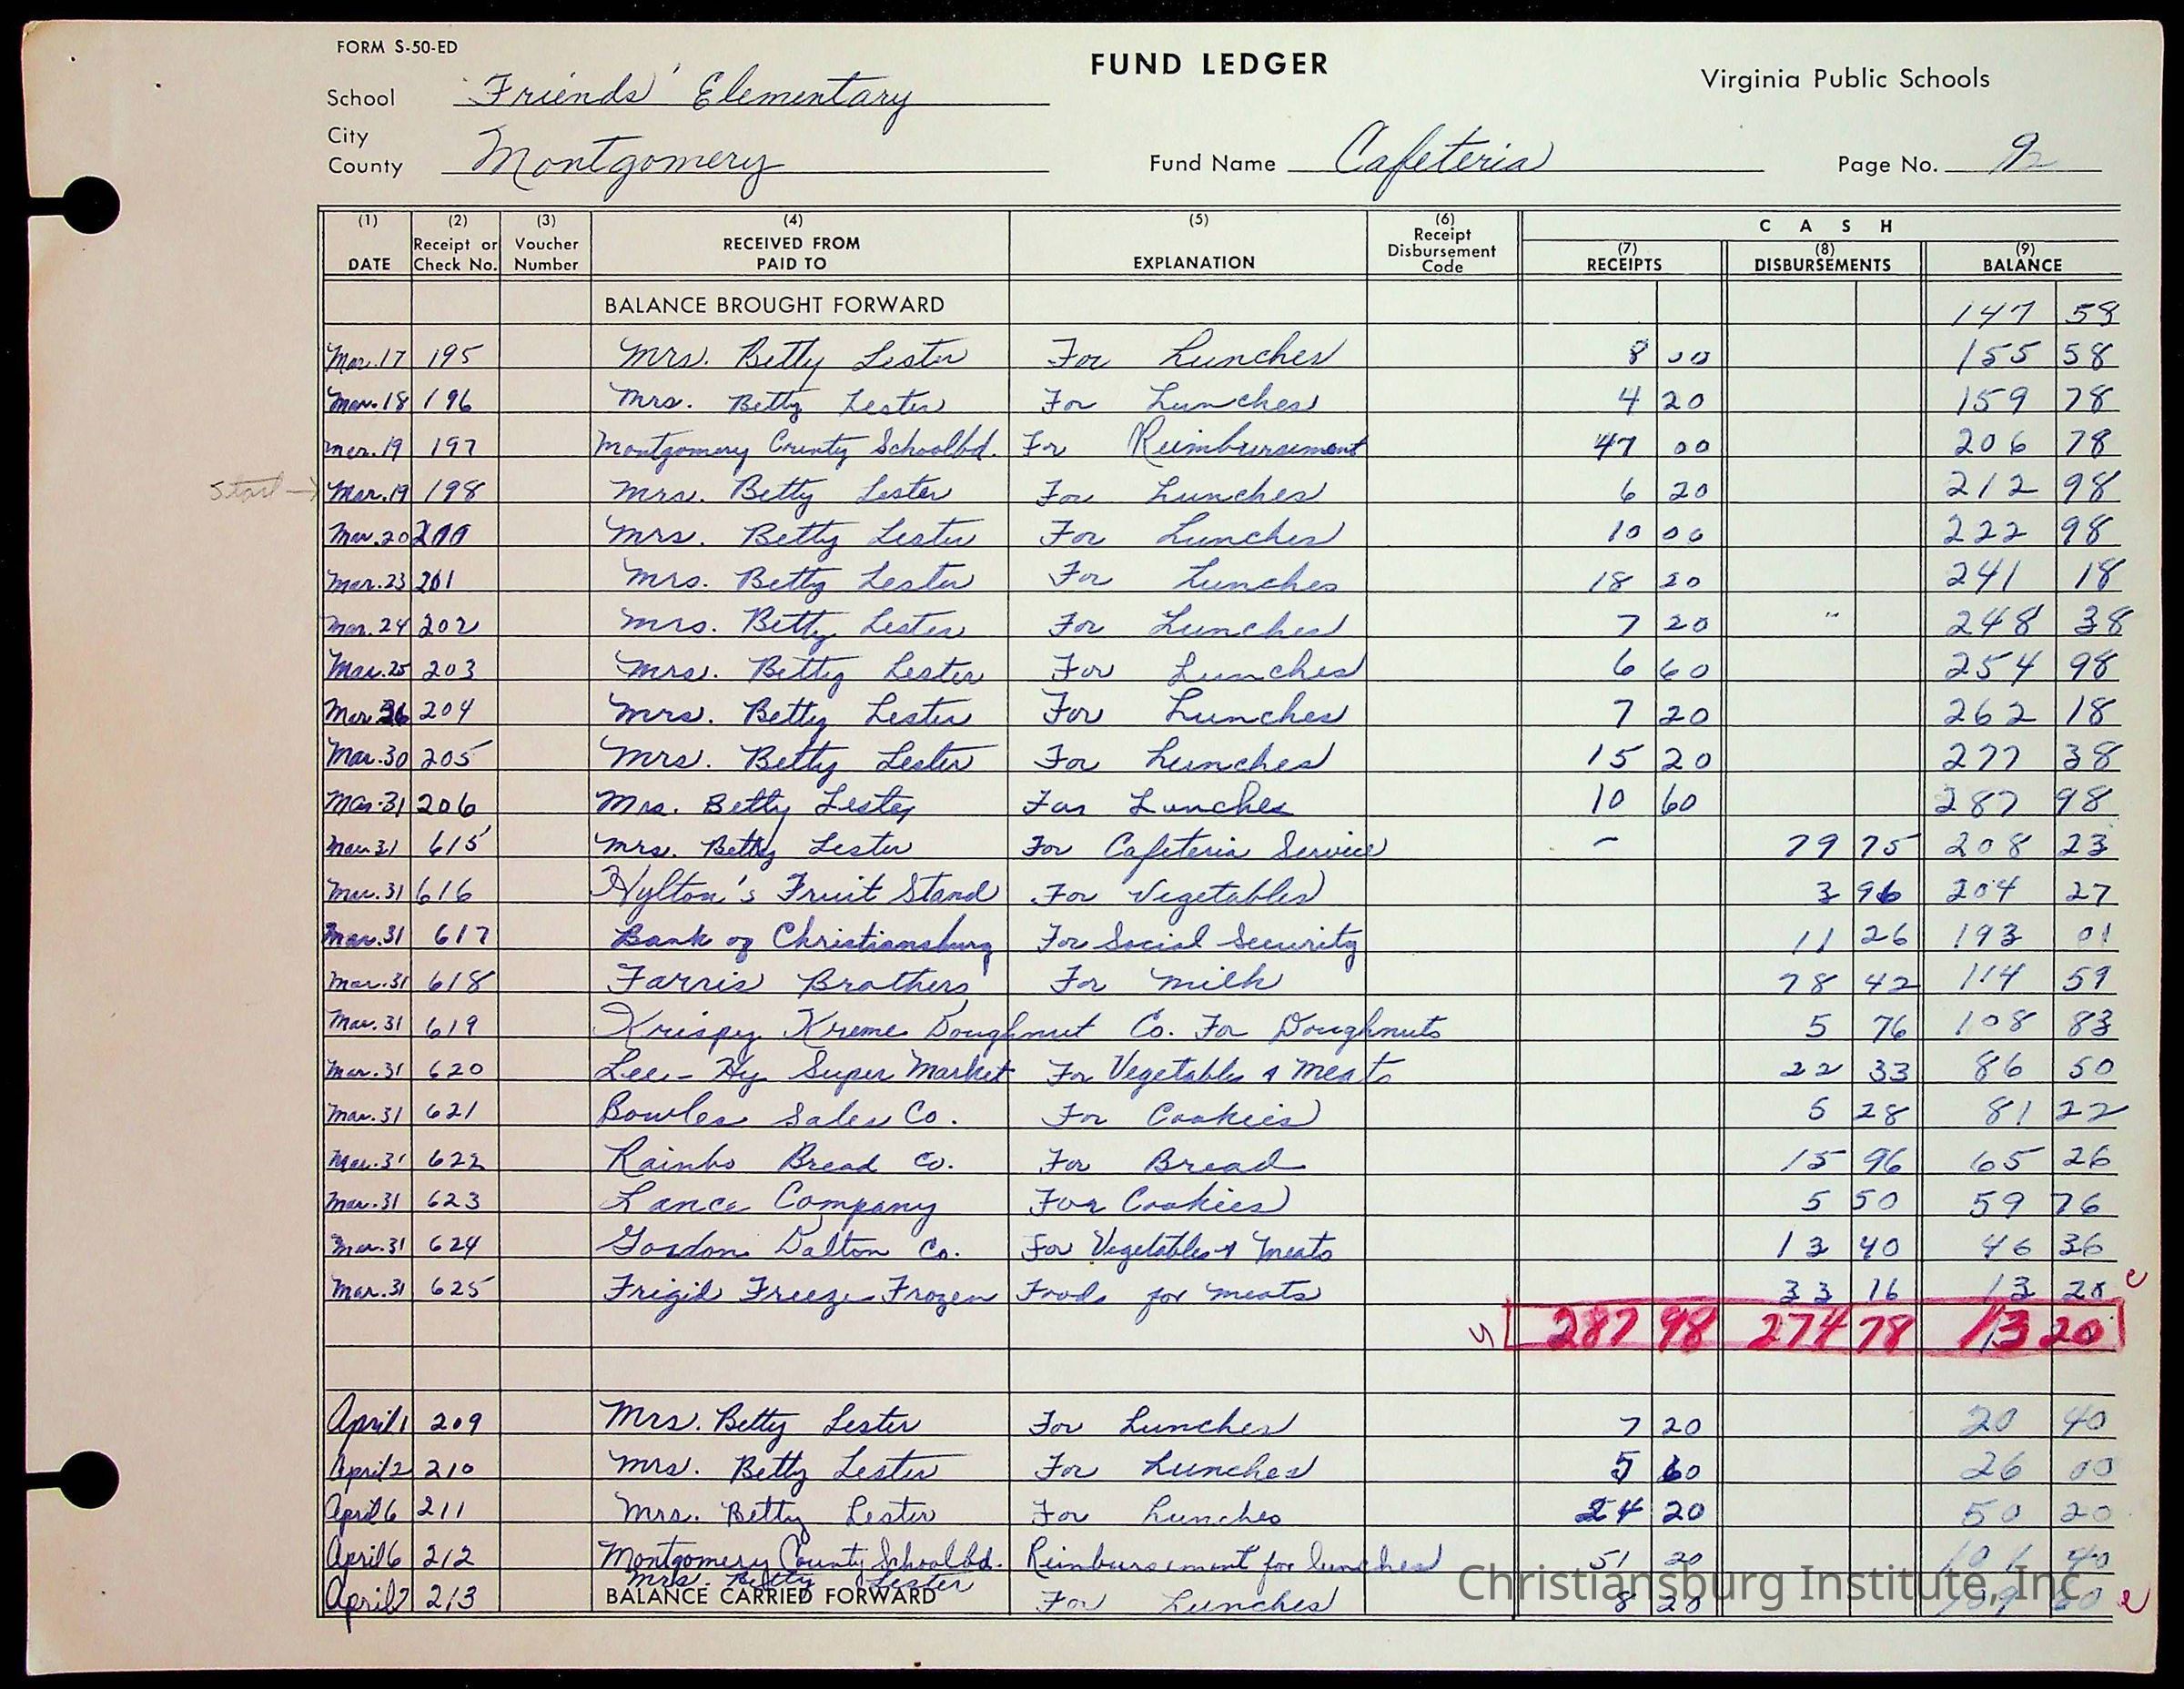 FORM S-50-ED
FUND LEDGER
Virginia Public Schools
School Friends' Elementary
City
County Montgomery
Fund Name Cafeteria
Page No. 9
(1) DATE (2) Receipt or Check No. (3) Voucher Number (4) RECEIVED FROM PAID TO (5) EXPLANATION (6) Receipt Disbursement Code CASH (7) RECEIPTS (8) DISBURSEMENTS (9) BALANCE
BALANCE BROUGHT FORWARD 147 58
Mar. 17 195 Mrs. Betty Lester For Lunches 8 00 155 58
Mar. 18 196 Mrs. Betty Lester For Lunches 4 20 159 78
Mar. 19 197 Montgomery County Schoolbd. For Reimbursement 47 00 206 78
Start → Mar. 19 198 Mrs. Betty Lester For Lunches 6 20 212 98
Mar. 20 200 Mrs. Betty Lester For Lunches 10 00 222 98
Mar. 23 201 Mrs. Betty Lester For Lunches 18 20 241 18
Mar. 24 202 Mrs. Betty Lester For Lunches 7 20 248 38
Mar. 25 203 Mrs. Betty Lester For Lunches 6 60 254 98
Mar 26 204 Mrs. Betty Lester For Lunches 7 20 262 18
Mar. 30 205 Mrs. Betty Lester For Lunches 15 20 277 38
Mar. 31 206 Mrs. Betty Lester For Lunches 10 60 287 98
Mar 31 615 Mrs. Betty Lester For Cafeteria Service - 79 75 208 23
Mar. 31 616 Hylton's Fruit Stand For Vegetables 3 96 204 27
Mar. 31 617 Bank of Christiansburg For Social Security 11 26 193 01
Mar. 31 618 Farris Brothers For Milk 78 42 114 59
Mar. 31 619 Krispy Kreme Doughnut Co. For Doughnuts 5 76 108 83
Mar. 31 620 Lee-Hy Super Market For Vegetables & Meats 22 33 86 50
Mar. 31 621 Bowles Sales Co. For Cookies 5 28 81 22
Mar. 31 622 Rainbo Bread Co. For Bread 15 96 65 26
Mar. 31 623 Lance Company For Cookies 5 50 59 76
Mar. 31 624 Gordon Dalton Co. For Vegetables & Meats 13 40 46 36
Mar. 31 625 Frigid Freeze Frozen Foods for meats 33 16 13 20
287 98 274 78 13 20
April 1 209 Mrs. Betty Lester For Lunches 7 20 20 40
April 2 210 Mrs. Betty Lester For Lunches 5 60 26 00
April 6 211 Mrs. Betty Lester For Lunches 24 20 50 20
April 6 212 Montgomery County Schoolbd. Reimbursement for lunches 51 20 101 40
April 7 213 Mrs. Betty Lester For Lunches 8 20 109 60
BALANCE CARRIED FORWARD
Christiansburg Institute, Inc.